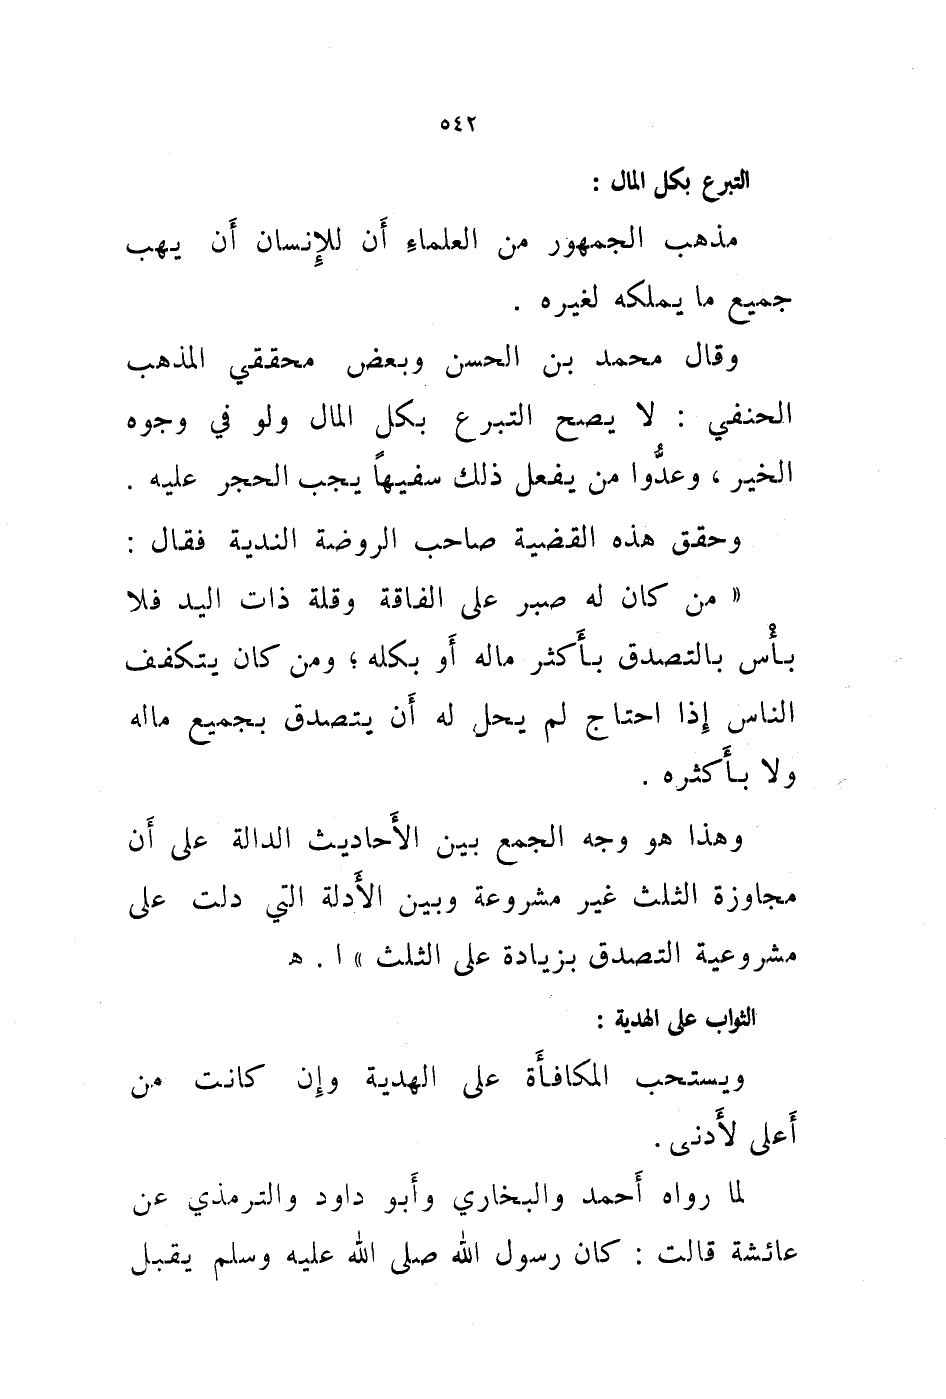 ٥٤٢
التبرع بكل المال :
مذهب الجمهور من العلماءِ أَن للإِنسان أَن يهب
جميع ما يملكه لغيره .
وقال محمد بن الحسن وبعض محققي المذهب
الحنفي : لا يصح التبرع بكل المال ولو في وجوه
الخير ، وعدُّوا من يفعل ذلك سفيهاً يجب الحجر عليه .
وحقق هذه القضية صاحب الروضة الندية فقال :
« من كان له صبر على الفاقة وقلة ذات اليد فلا
بأْس بالتصدق بأَكثر ماله أَو بكله ؛ ومن كان يتكفف
الناس إِذا احتاج لم يحل له أَن يتصدق بجميع ماله
ولا بأَكثره .
وهذا هو وجه الجمع بين الأَحاديث الدالة على أَن
مجاوزة الثلث غير مشروعة وبين الأَدلة التي دلت على
مشروعية التصدق بزيادة على الثلث » ا . ه
الثواب على الهدية :
ويستحب المكافأَة على الهدية وإِن كانت من
أَعلى لأَدنى .
لما رواه أَحمد والبخاري وأَبو داود والترمذي عن
عائشة قالت : كان رسول الله صلى الله عليه وسلم يقبل